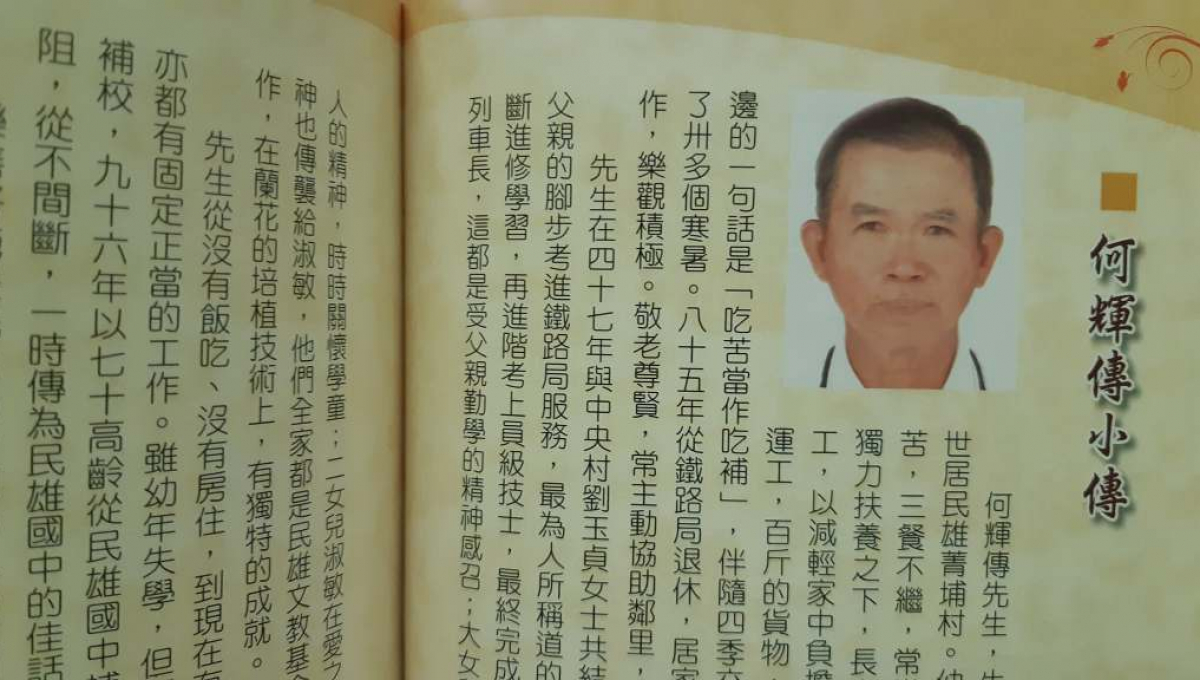 何輝傳小傳
何輝傳先生，
世居民雄菁埔村。
苦，三餐不繼，常
獨力扶養之下，長
工，以減輕家中負擔
運工，百斤的貨物
邊的一句話是「吃苦當作吃補」，伴隨四季交
了卅多個寒暑。八十五年從鐵路局退休，居家
作，樂觀積極。敬老尊賢，常主動協助鄰里，
先生在四十七年與中央村劉玉貞女士共結
父親的腳步考進鐵路局服務，最為人所稱道的
斷進修學習，再進階考上員級技士，最終完成
列車長，這都是受父親勤學的精神感召；大女
人的精神，時時關懷學童；二女兒淑敏在愛之
神也傳襲給淑敏，他們全家都是民雄文教基
作，在蘭花的培植技術上，有獨特的成就。
先生從沒有飯吃、沒有房住，到現在有
亦都有固定正當的工作。雖幼年失學，但
補校，九十六年以七十高齡從民雄國中補
阻，從不間斷，一時傳為民雄國中的佳話